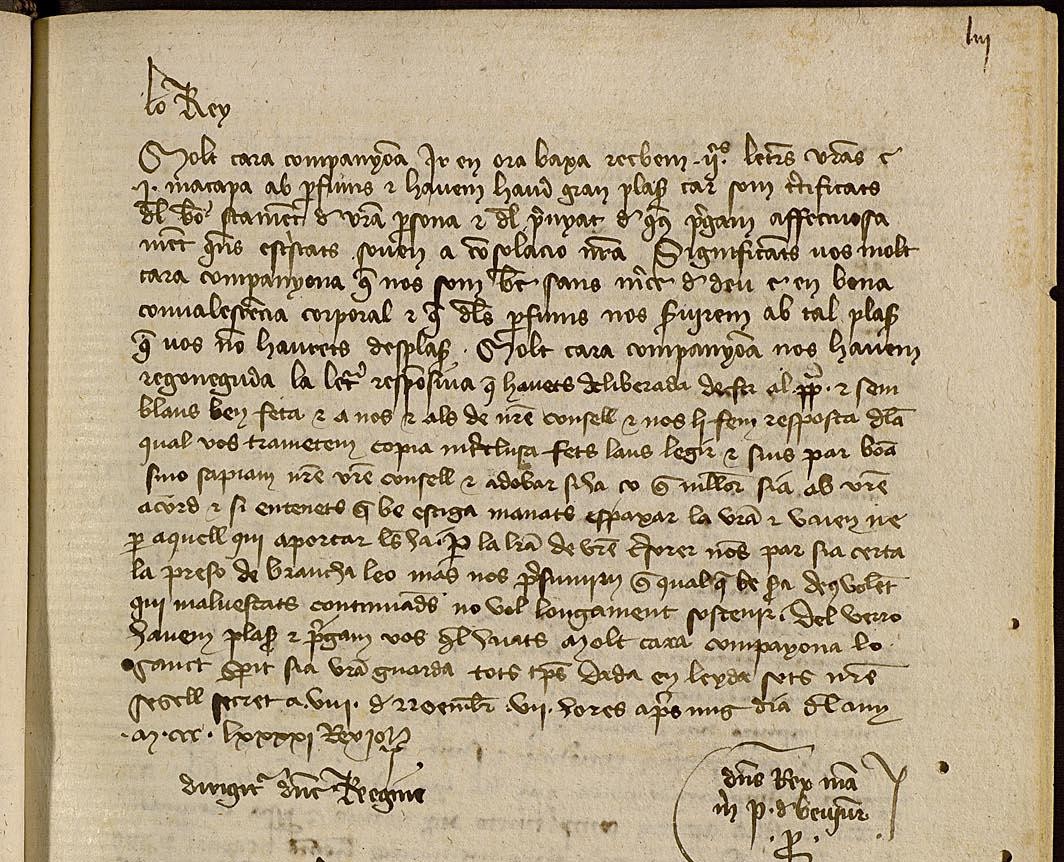 liij
lo Rey
Molt cara companyõa Ir en ora baxa reebem .ij.s letres vr̃as e
.j. macapa ab perfums e havem haud gran plaser car som certificats
del bõ stament de vr̃a persona e del prenyat de que pregam affectuosa
ment que'ns escrivats soven a cõsolacio nr̃a Significants vos molt
cara companyona que nos som be sans merce de deu e en bona
convalescẽcia corporal e que dels perfums nos servirem ab tal plaser
que vos nõ haurets desplaer . Molt cara companyõa nos havem
regoneguda la letr̃ responsiva que havets deliberada de fer al . pp̃ . e sem
blans ben feta e a nos e als de nr̃e consell e nos hi fem resposta dela
qual vos trametem copia interclusa fets laus legir e sius par bõa
sino sapiam nr̃e vr̃e consell e adobar si ha co que millor sia ab vr̃e
acord e si entenets que be estiga manats espaxar la vr̃a e
per aquell qui aportar les ha . Per la lr̃a de vr̃e tresorer nos par sia certa
la preso de brancha leo mas nos que qualque be
qui malvestats continuades no vol longament sostenir . Del verro
havem plaser e pregam vos quel hajats Molt cara companyona lo
sanct sperit sia vr̃a guarda tots tẽps Dada en leyda sots nr̃e
segell secret a .viij. de noembr̃ .vii. hores apres mig dia del any
.M.ccc.lxxxxi Rex Joh̃
dirigitr̃ dñe Regine
dñs Rex mã
m̃ p. de
.p.